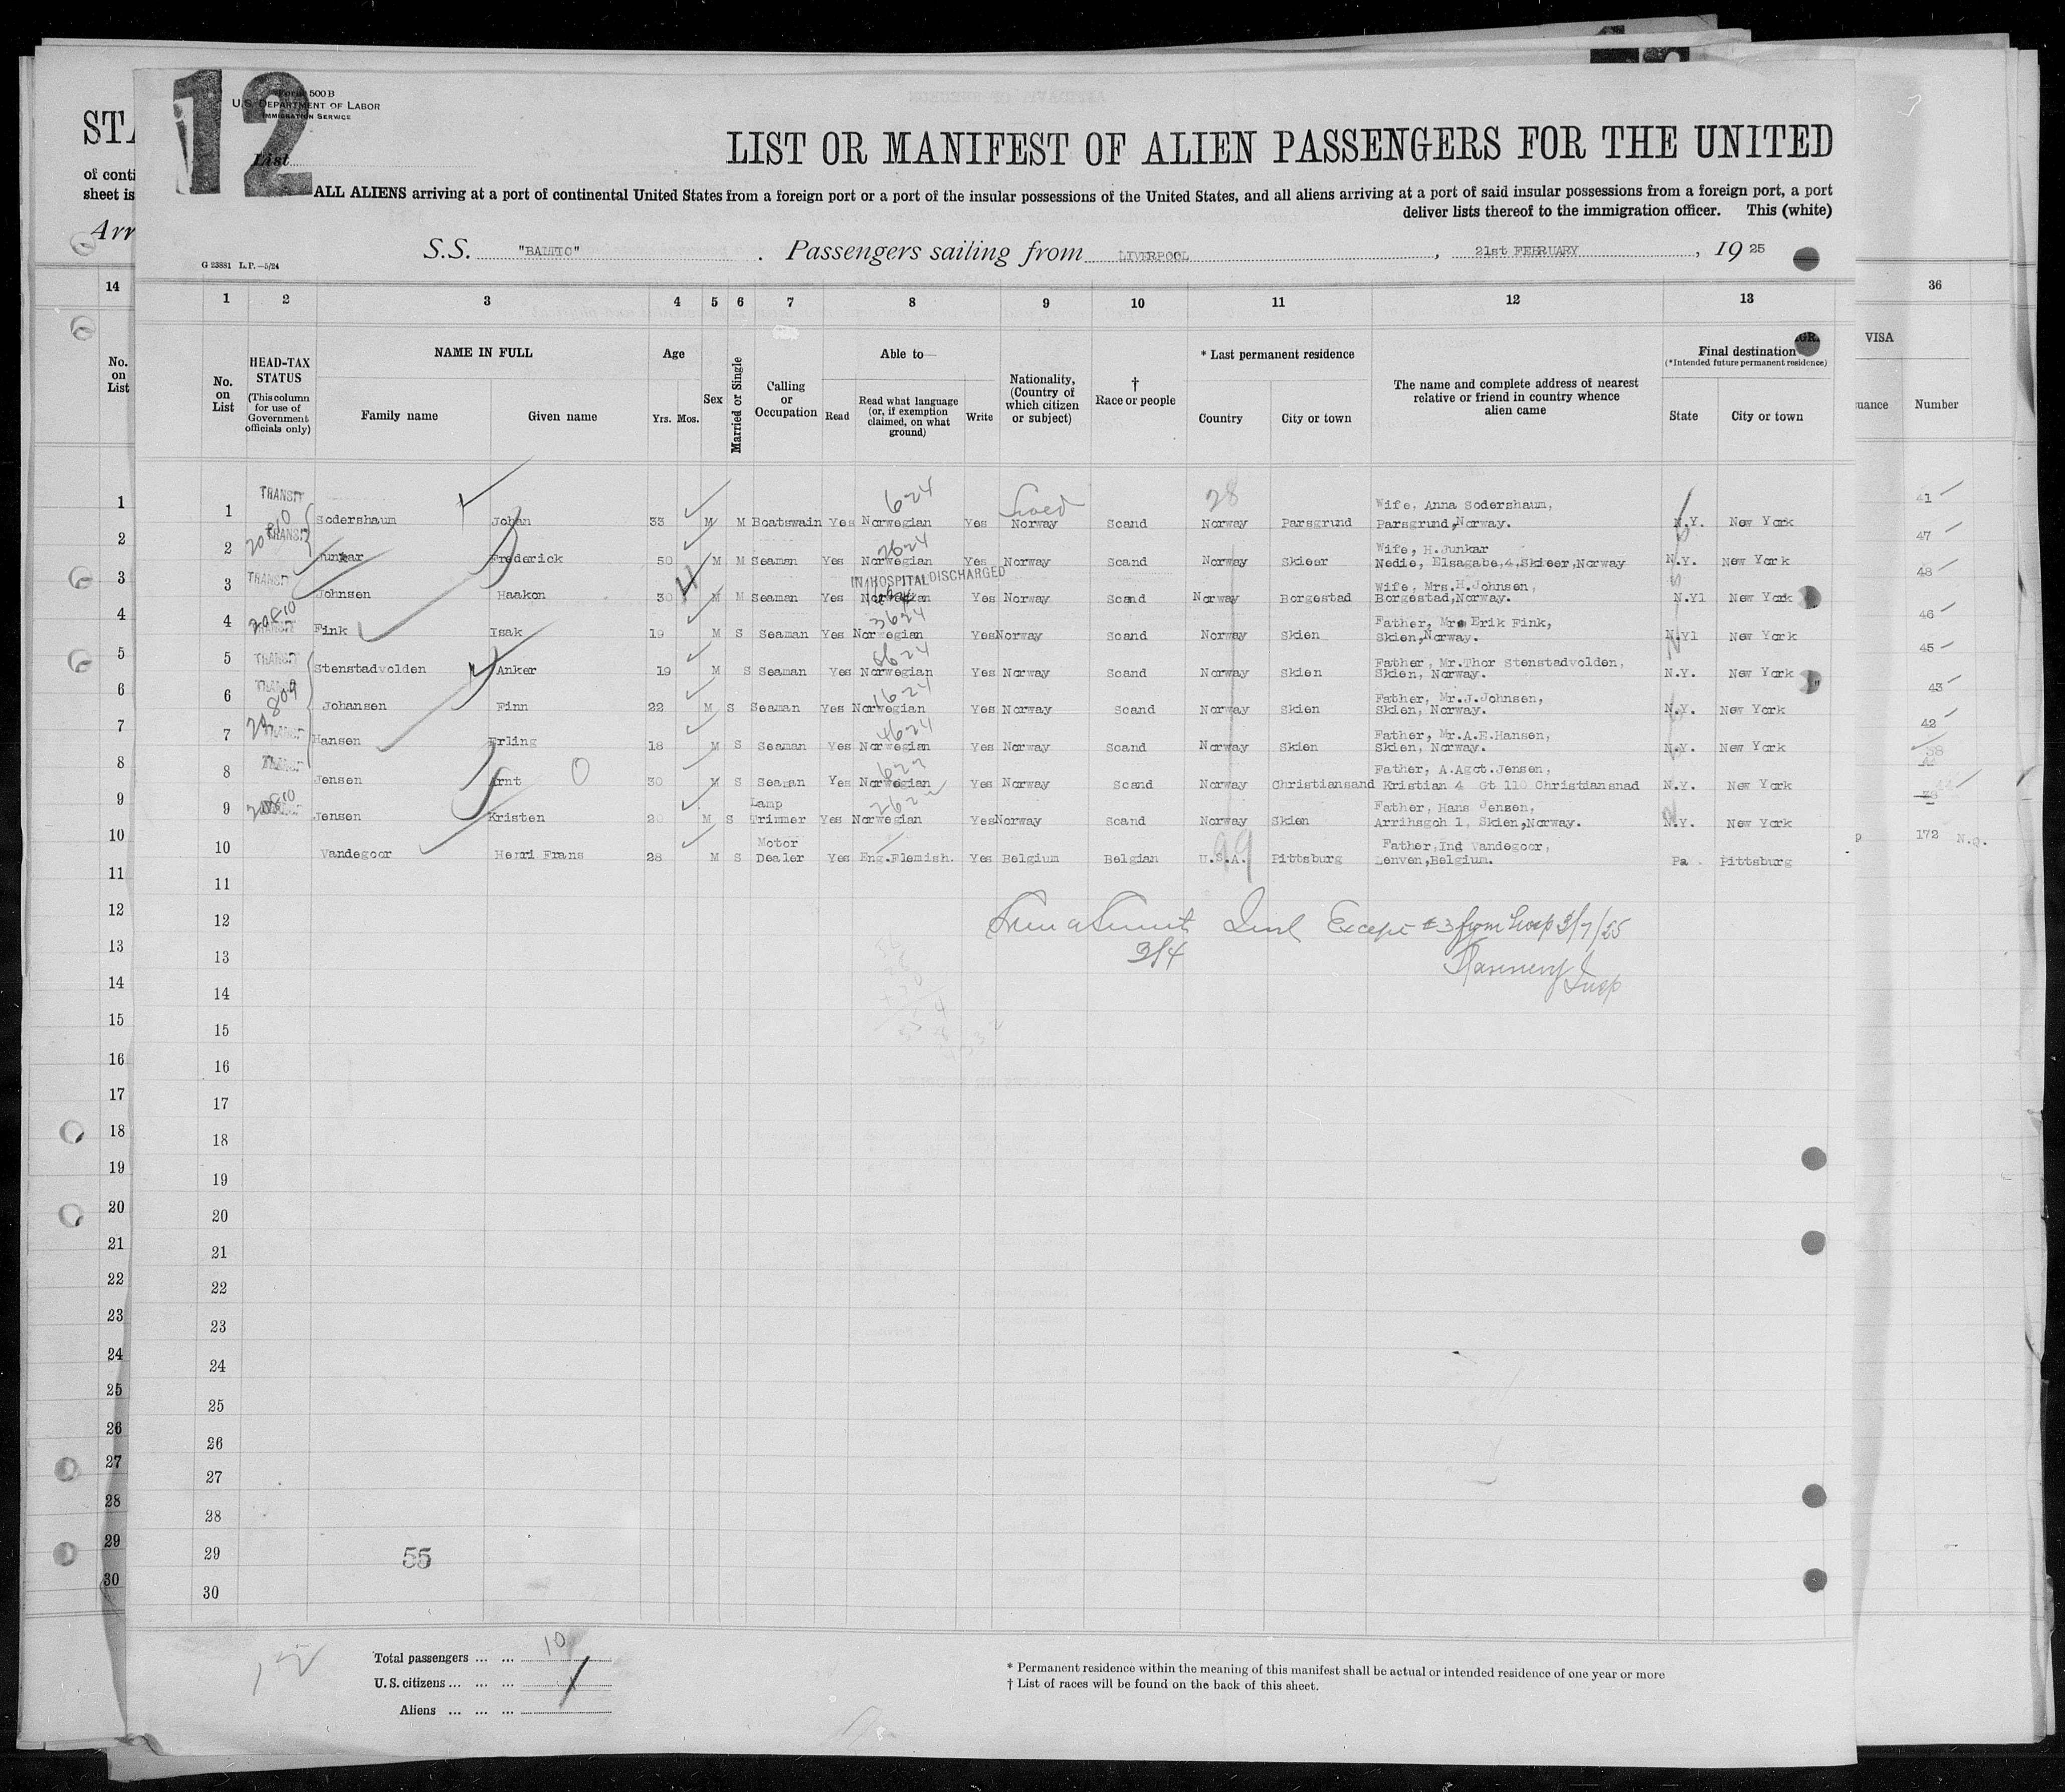 12
Form 500 B
U.S. DEPARTMENT OF LABOR
IMMIGRATION SERVICE
List
LIST OR MANIFEST OF ALIEN PASSENGERS FOR THE UNITED
ALL ALIENS arriving at a port of continental United States from a foreign port or a port of the insular possessions of the United States, and all aliens arriving at a port of said insular possessions from a foreign port, a port
deliver lists thereof to the immigration officer. This (white)
S.S. "BALTIC" . Passengers sailing from LIVERPOOL , 21st FEBRUARY , 19 25
G 23881 L.P.—5/24
1 2 3 4 5 6 7 8 9 10 11 12 13
No. on List
HEAD-TAX STATUS
(This column for use of Government officials only)
NAME IN FULL
Family name Given name
Age
Yrs. Mos.
Sex
Married or Single
Calling or Occupation
Able to—
Read
Read what language (or, if exemption claimed, on what ground)
Write
Nationality, (Country of which citizen or subject)
† Race or people
* Last permanent residence
Country City or town
The name and complete address of nearest relative or friend in country whence alien came
Final destination
(*Intended future permanent residence)
State City or town
1 TRANSIT Sodershaum Johan 33 M M Boatswain Yes Norwegian Yes Norway Scand Norway Parsgrund Wife, Anna Sodershaum, Parsgrund, Norway. N.Y. New York
2 TRANSIT Junkar Frederick 50 M M Seaman Yes Norwegian Yes Norway Scand Norway Skieer Wife, H.Junkar Nedie, Elsagabe,4,Skieer,Norway N.Y. New York
IN HOSPITAL DISCHARGED
3 TRANSIT Johnsen Haakon 30 M M Seaman Yes Norwegian Yes Norway Scand Norway Borgestad Wife, Mrs.H.Johnsen, Borgestad,Norway. N.Yl New York
4 TRANSIT Fink Isak 19 M S Seaman Yes Norwegian Yes Norway Scand Norway Skien Father, Mr. Erik Fink, Skien,Norway. N.Yl New York
5 TRANSIT Stenstadvolden Anker 19 M S Seaman Yes Norwegian Yes Norway Scand Norway Skien Father, Mr.Thor Stenstadvolden, Skien, Norway. N.Y. New York
6 TRANSIT Johansen Finn 22 M S Seaman Yes Norwegian Yes Norway Scand Norway Skien Father, Mr.J.Johnsen, Skien, Norway. N.Y. New York
7 TRANSIT Hansen Erling 18 M S Seaman Yes Norwegian Yes Norway Scand Norway Skien Father, Mr.A.E.Hansen, Skien, Norway. N.Y. New York
8 TRANSIT Jensen Arnt 30 M S Seaman Yes Norwegian Yes Norway Scand Norway Christiansand Father, A.Agot.Jensen, Kristian 4 Gt 110 Christiansnad N.Y. New York
9 Jensen Kristen 20 M S Lamp Trimmer Yes Norwegian Yes Norway Scand Norway Skien Father, Hans Jensen, Arrihsgch 1, Skien,Norway. N.Y. New York
10 Vandegoor Henri Frans 28 M S Motor Dealer Yes Eng.Flemish. Yes Belgium Belgian U.S.A. Pittsburg Father,Ind Vandegoor, Lenven,Belgium. Pa . Pittsburg
11
12
Except #3 from Hosp 3/7/25
3/4
13
Insp
14
15
16
17
18
19
20
21
22
23
24
25
26
27
28
29
55
30
Total passengers ... ... 10
U.S. citizens ... ... ...
Aliens ... ... ...
* Permanent residence within the meaning of this manifest shall be actual or intended residence of one year or more
† List of races will be found on the back of this sheet.
STA
of conti
sheet is
Arr
14
No. on List
1
2
3
4
5
6
7
8
9
10
11
12
13
14
15
16
17
18
19
20
21
22
23
24
25
26
27
28
29
30
36
VISA
Number
41
47
48
46
45
43
42
38
172 N.Q.